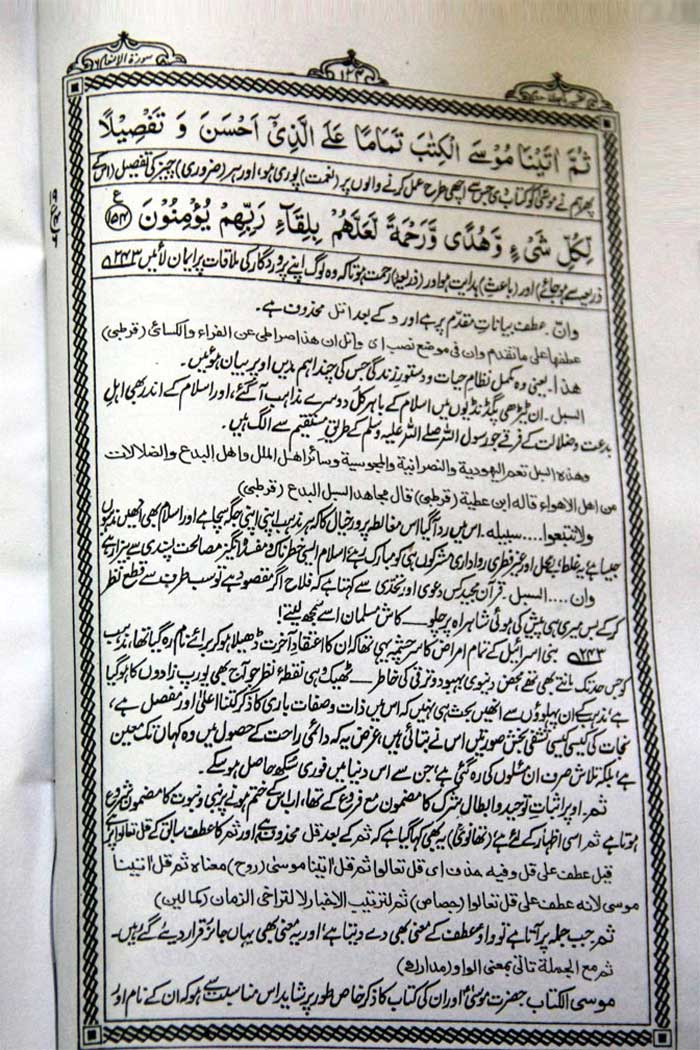 سورة الانعام ۶
۱۲۴۰
ثُمَّ اٰتَيْنَا مُوْسَى الْكِتٰبَ تَمَامًا عَلَى الَّذِيْٓ اَحْسَنَ وَ تَفْصِيْلًا
پھر ہم نے موسیٰؑ کو کتاب دی جس سے اچھی طرح عمل کرنے والوں پر (نعمت) پوری ہو، اور ہر (ضروری) چیز کی تفصیل (اس کے
لِّكُلِّ شَيْءٍ وَّهُدًى وَّرَحْمَةً لَّعَلَّهُمْ بِلِقَآءِ رَبِّهِمْ يُؤْمِنُوْنَ ﴿۱۵۴﴾ ع
ذریعہ سے) ہوجائے اور (باعثِ) ہدایت ہو اور (ذریعۂ) رحمت ہو تاکہ وہ لوگ اپنے پروردگار کی ملاقات پر ایمان لائیں ۲۴۳ھ
وانّ۔ عطف بیاناتِ مقدّم پر ہے اور و کے بعد اتل محذوف ہے۔
عطفها على ما تقدم وان فى موضع نصب اى واتل ان هذا صراطى عن الفراء والكسائى (قرطبى)
ھذا۔ یعنی وہ مکمل نظامِ حیات و دستورِ زندگی جس کی چند اہم مدیں اوپر بیان ہوئیں۔
السبل۔ ان ٹیڑھی پگڈنڈیوں میں اسلام کے باہر کل دوسرے مذاہب آگئے، اور اسلام کے اندر بھی اہلِ
بدعت و ضلالت کے فرقے جو رسول اللہ صلے اللہ علیہ وسلم کے طریقِ مستقیم سے الگ ہیں۔
وهذه السبل تعم اليهودية والنصرانية والمجوسية وسائر اهل الملل واهل البدع والضلالات
من اهل الاهواء قاله ابن عطية (قرطبى) قال مجاهد السبل البدع (قرطبى)
ولا تتبعوا.....سبیله۔ اس میں رد آگیا اس مغالطہ پرور خیال کا کہ ہر مذہب اپنی اپنی جگہ سچا ہے اور اسلام بھی انھیں مذہبوں
جیسا ہے یہ غلط، بیکل اور غیر فطری رواداری مشرکوں ہی کو مبارک رہے، اسلام ایسی خطرناک و مفسدہ انگیز مصالحت پسندی سے بیزار ہے
وان.....السبل۔ قرآن مجید کس دعوی اور تحدّی سے کہتا ہے کہ فلاح اگر مقصود ہے تو سب طرف سے قطع نظر
کرکے بس میری ہی پیش کی ہوئی شاہراہ پر چلو ــــ کاش مسلمان اسے سمجھ لیتے!
۲۴۳ھ بنی اسرائیل کے تمام امراض کا سرچشمہ یہی تھا کہ ان کا اعتقادِ آخرت ڈھیلا ہوکر برائے نام رہ گیا تھا، مذہب
کو جس حد تک مانتے بھی تھے محض دنیوی بہبود و ترقی کی خاطر ــــ ٹھیک وہی نقطۂ نظر جو آج بھی یورپ زادوں کا ہوگیا
ہے، مذہب کے ان پہلوؤں سے انھیں بحث ہی نہیں کہ اس میں ذات و صفات باری کا ذکر کتنا اعلیٰ اور مفصل ہے،
نجات کی کیسی کیسی تشفی بخش صورتیں اس نے بتائی ہیں، غرض یہ کہ دائمی راحت کے حصول میں وہ کہاں تک معین
ہے، بلکہ تلاش صرف ان مسئلوں کی رہ گئی ہے، جن سے اس دنیا میں فوری سکھ حاصل ہوسکے۔
ثم۔ اوپر اثباتِ توحید و ابطالِ شرک کا مضمون مع فروع کے تھا، اب اس کے ختم ہونے پر نبی و نبوت کا مضمون شروع
ہوتا ہے ثم اسی اظہار کے لئے ہے، (تھانویؒ) یہ بھی کہا گیا ہے کہ ثم کے بعد قل محذوف ہے اور ثم کا عطف سابق کے قل تعالوا پر ہے
قيل عطف على قل وفيه حذف اى قل تعالوا ثم قل اٰتينا موسى (روح) معناه ثم قل اٰتينا
موسى لانه عطف على قل تعالوا (جصاص) ثم لترتيب الاخبار لا لتراخى الزمان (كمالين)
ثم۔ جب جملہ پر آتا ہے تو واوِ عطف کے معنی بھی دے دیتا ہے، اور یہ معنی بھی یہاں جائز قرار دیئے گئے ہیں۔
ثم مع الجملة تاتى بمعنى الواو (مدارك)
موسی الکتاب حضرت موسیٰؑ اور ان کی کتاب کا ذکر خاص طور پر شاید اس مناسبت سے ہو کہ ان کے نام اور